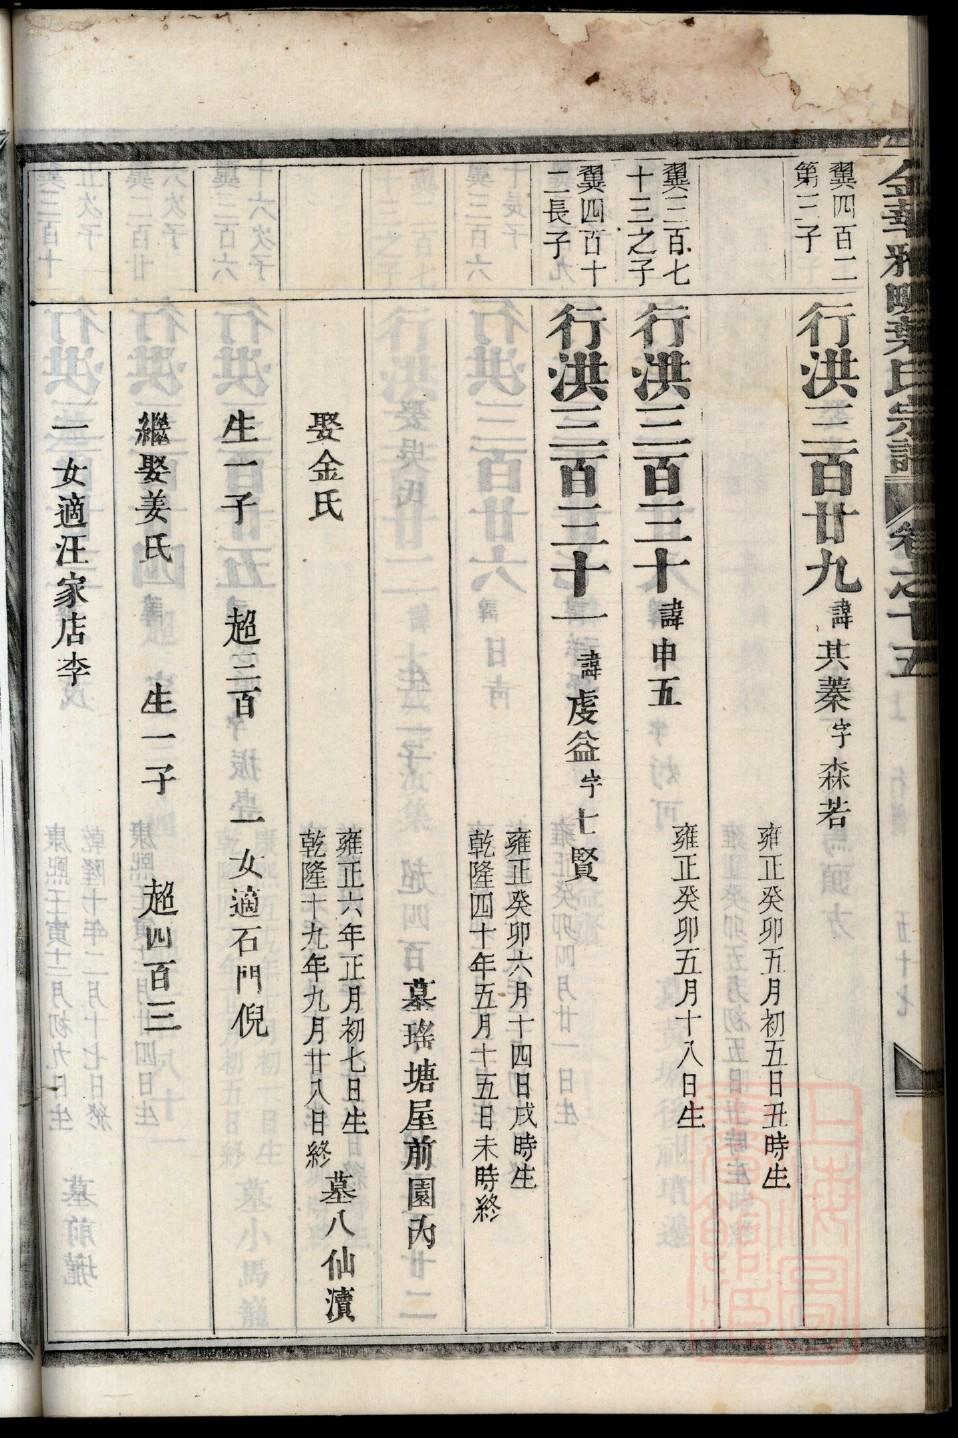 金華雅畈葉氏宗譜 卷之十五
翼四百二
第三子
行洪三百廿九 諱其蓁字森若
雍正癸卯五月初五日丑時生
翼三百七
十三之子
行洪三百三十 諱申五
雍正癸卯五月十八日生
翼四百十
二長子
行洪三百三十一 諱虔益字七賢
雍正癸卯六月十四日戌時生
乾隆四十年五月十五日未時終
墓瑤塘屋前園內
娶金氏
雍正六年正月初七日生
乾隆十九年九月廿八日終
墓八仙瀆
生一子 超三百 一女適石門倪
繼娶姜氏 生一子 超四百三
一女適汪家店李